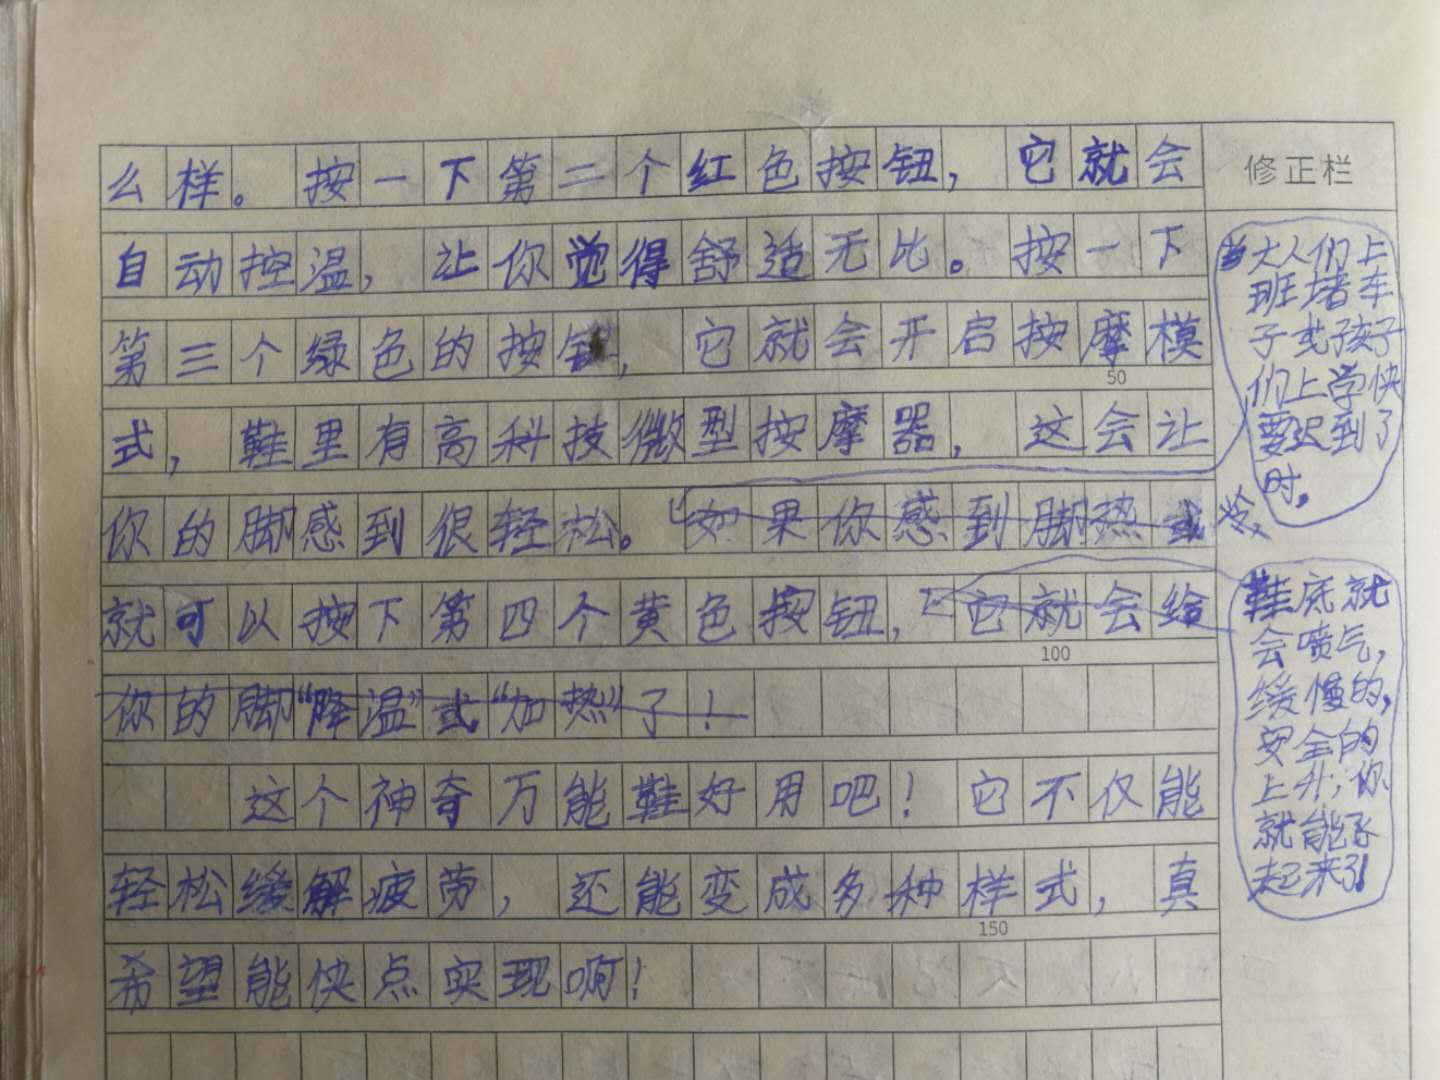 么样。按一下第二个红色按钮，它就会
修正栏
自动控温，让你觉得舒适无比。按一下
第三个绿色的按钮，它就会开启按摩模
50
式，鞋里有高科技微型按摩器，这会让
你的脚感到很轻松。如果你感到脚热或冷，
就可以按下第四个黄色按钮，它就会给
100
你的脚“降温”或“加热”了！
这个神奇万能鞋好用吧！它不仅能
轻松缓解疲劳，还能变成多种样式，真
150
希望能快点实现啊！
当大人们上
班堵车
子或孩子
们上学快
要迟到了
时。
鞋底就
会喷气，
缓慢的，
安全的
上升，你
就能飞
起来了！